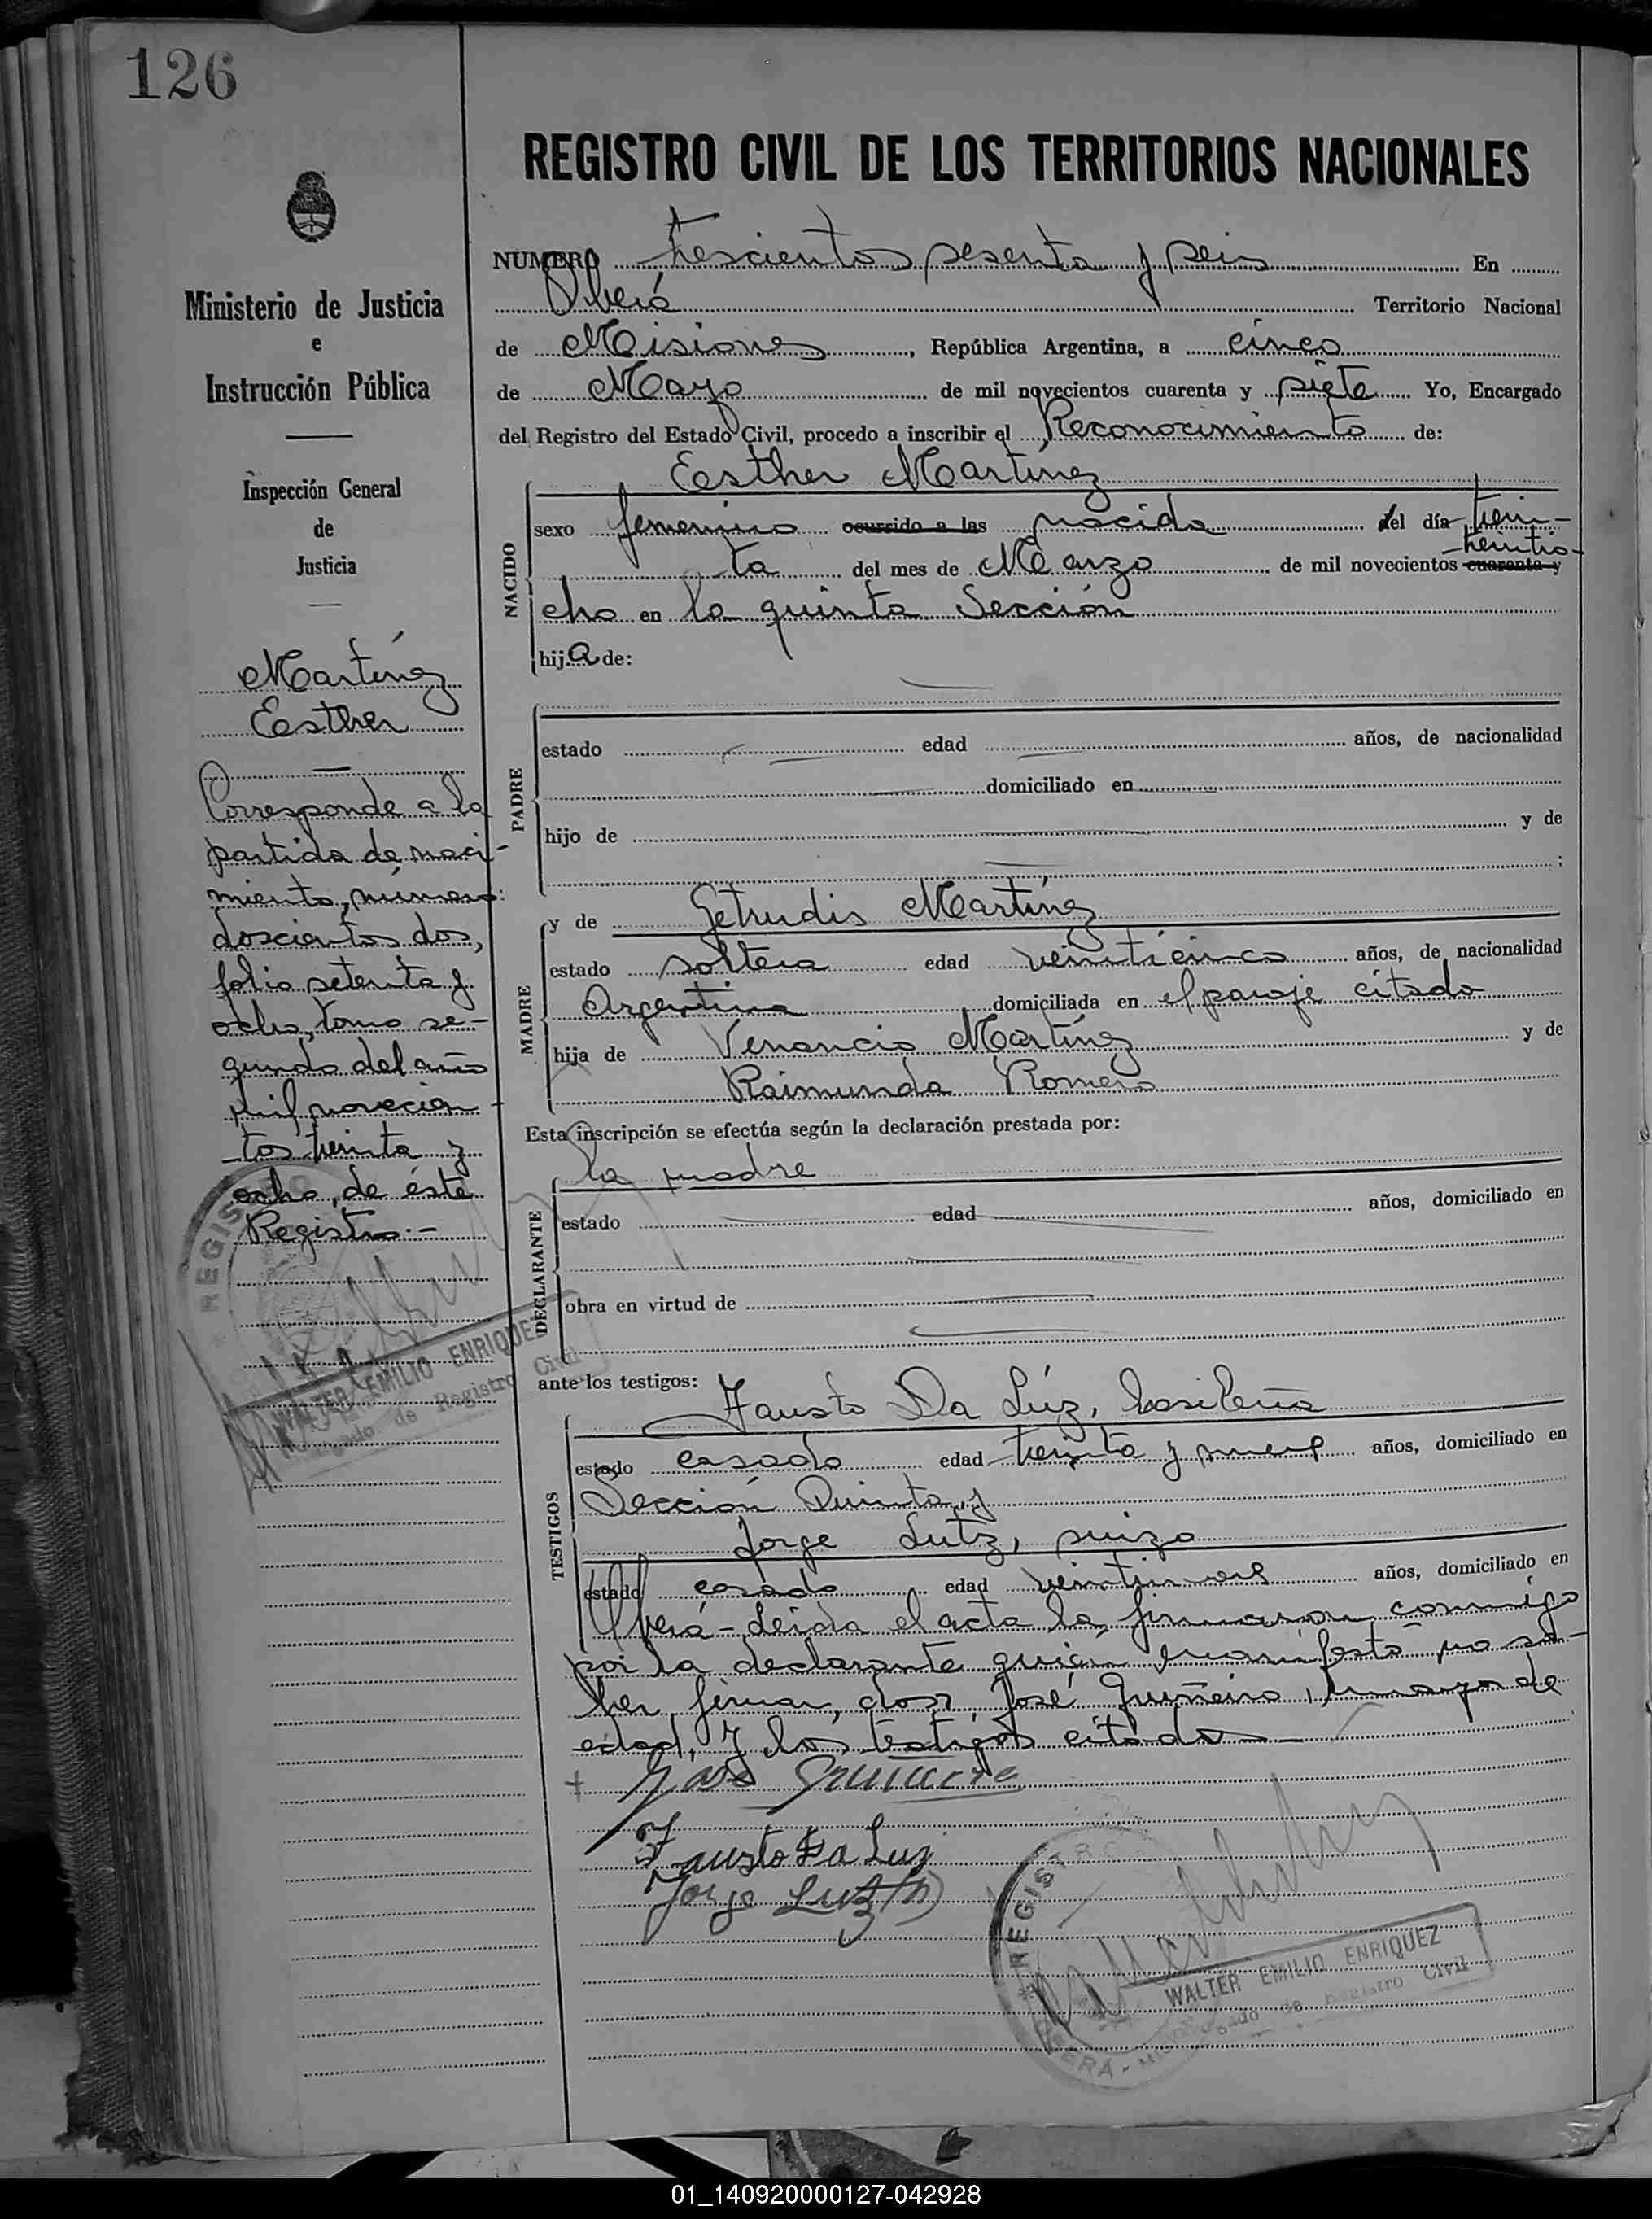 126
REGISTRO CIVIL DE LOS TERRITORIOS NACIONALES
Ministerio de Justicia
e
Instrucción Pública
Inspección General
de
Justicia
Martínez
Esther
Corresponde a la
partida de naci-
miento, número:
doscientos dos,
folio setenta y
ocho, tomo se-
gundo del año
mil novecien-
tos treinta y
ocho, de éste
Registro.-
REGISTRO
WALTER EMILIO ENRIQUEZ
Encargado de Registro Civil
NUMERO trescientos sesenta y seis En
Oberá Territorio Nacional
de Misiones, República Argentina, a cinco
de Mayo de mil novecientos cuarenta y siete Yo, Encargado
del Registro del Estado Civil, procedo a inscribir el Reconocimiento de:
NACIDO
Esther Martínez
sexo femenino ocurrido a las nacida del día trein-
treintio-
ta del mes de Marzo de mil novecientos cuarenta y
cho en la quinta Sección
hija de:
PADRE
estado edad años, de nacionalidad
domiciliado en
hijo de y de
;
MADRE
y de Getrudis Martínez
estado soltera edad veinticinco años, de nacionalidad
Argentina domiciliada en el paraje citado
hija de Venancio Martínez y de
Raimunda Romero
Esta inscripción se efectúa según la declaración prestada por:
la madre
DECLARANTE
estado edad años, domiciliado en
obra en virtud de
ante los testigos:
TESTIGOS
Fausto Da Lúz, brasileño
estado casado edad treinta y nueve años, domiciliado en
Sección Quinta, y
Jorge Lutz, suizo
estado casado edad veintinueve años, domiciliado en
Oberá-Leída el acta la firmaron conmigo
por la declarante quién manifestó no sa-
ber firmar, don José Guiñeiro, mayor de
edad, y los testigos citados
Fausto Da Luz
Jorge Lutz (h)
REGISTRO
WALTER EMILIO ENRIQUEZ
Encargado de Registro Civil
OBERÁ -
01_140920000127-042928